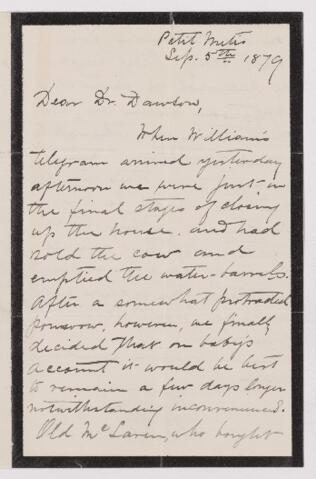 Petit Metis
Sep. 5th 1879
Dear Dr. Dawson,
When William's
telegram arrived yesterday
afternoon we were just in
the final stages of closing
up the house, and had
sold the cow and
emptied the water-barrels.
After a somewhat protracted
however, we finally
decided that on baby's
account it would be best
to remain a few days longer
notwithstanding inconvenience.
Old McLaren, who bought